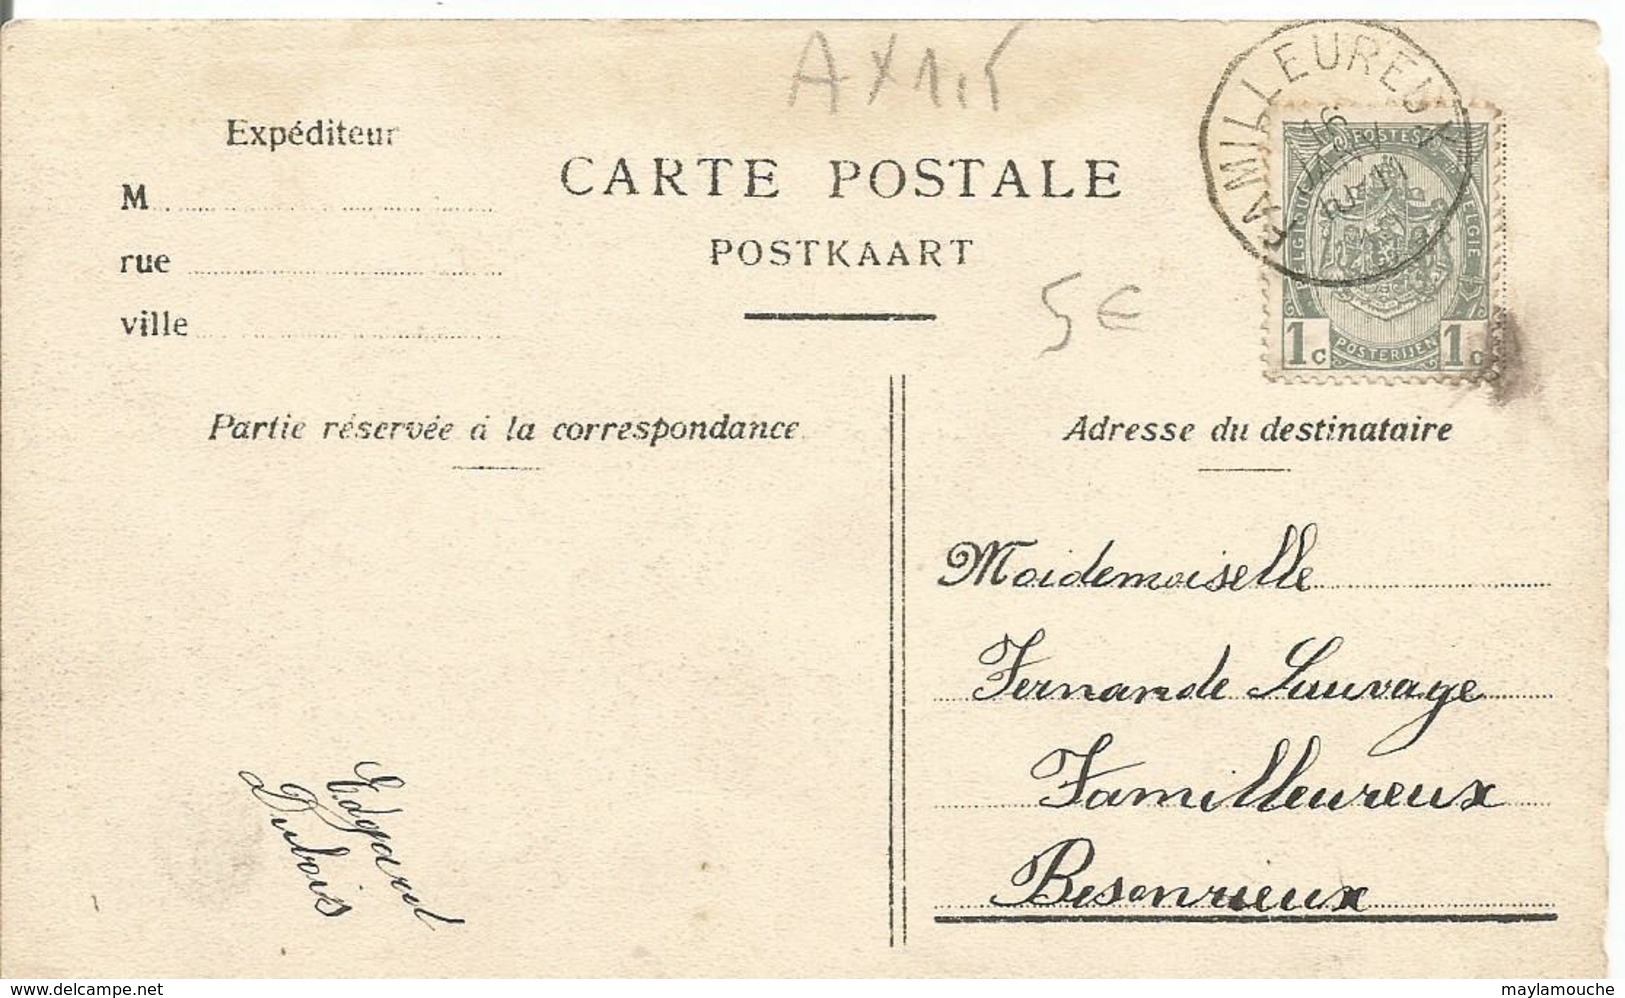 AX1,5
FAMILLEUREUX
16
JANV
Expéditeur
M
rue
ville
CARTE POSTALE
POSTKAART
5€
POSTES
BELGIQUE
BELGIE
1c POSTERIJEN 1c
Partie réservée à la correspondance
Adresse du destinataire
Maidemoiselle
Fernande Sauvage
Familleureux
Besonrieux
Edgard
Dubois
www.delcampe.net
maylamouche